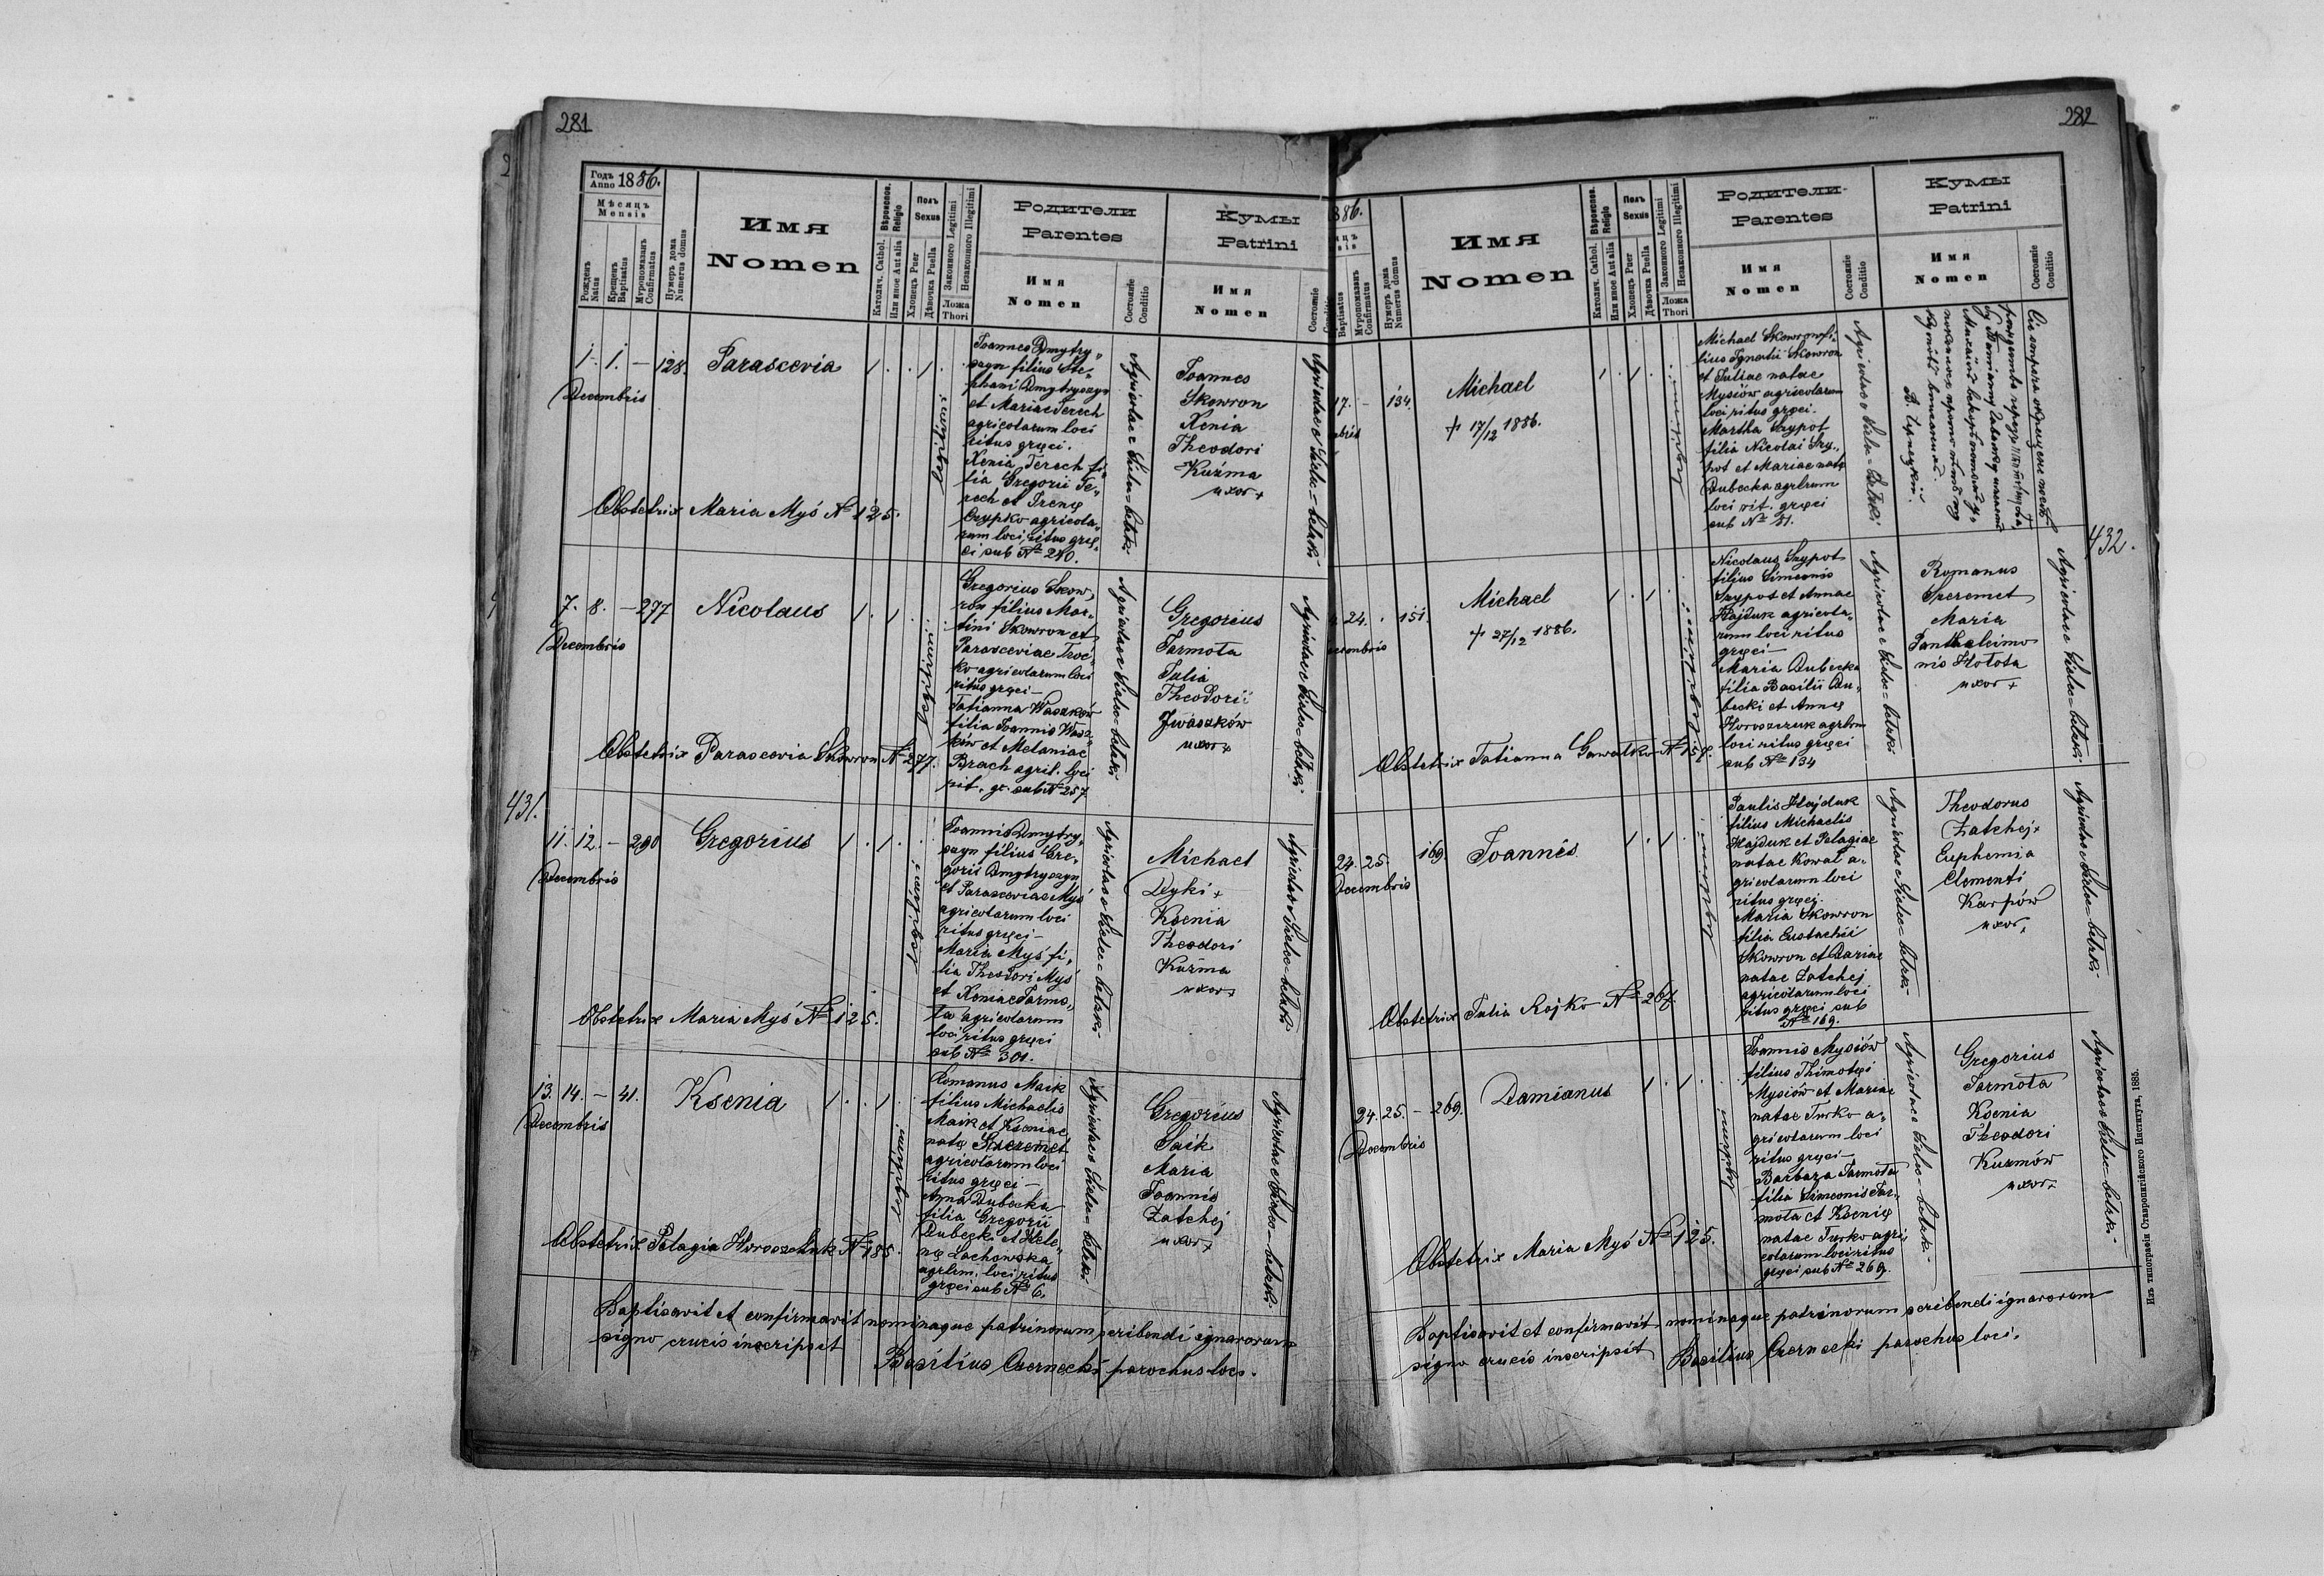 281
Годъ Anno 1886.
Мѣсяцъ Mensis
Рожденъ Natus
Крещенъ Baptisatus
Мѵропомазанъ Confirmatus
Нумеръ дома Numerus domus
Имя
Nomen
Вѣроиспов. Religio
Католич. Cathol.
Или иное Aut alia
Полъ Sexus
Хлопецъ Puer
Дѣвочка Puella
Законного Legitimi
Незаконного Illegitimi
Ложа Thori
Родители
Parentes
Имя
Nomen
Состояніе
Conditio
Кумы
Patrini
Имя
Nomen
Состояніе
Conditio
1. 1. — 128.
Decembris
Parascevia
1. . 1.
legitimi
Joannes Dmytry„
szyn filius Ste„
phani Dmytryszyn
et Mariae Terech
agricolarum loci
ritus gręci.
Xenia Terech fi„
lia Gregorii Te„
rech et Irenę
Czypko agricola„
rum loci ritus grę„
ci sub № 240.
Agricolae e Sielec-bełzki
Joannes
Skowron
Xenia
Theodori
Kuźma
uxor +
Agricolae e Sielec-bełzki
Obstetrix Maria Myś № 125.
7. 8. — 277
Decembris
Nicolaus
1. 1.
legitimi
Gregorius Skow„
ron filius Mar„
tini Skowron et
Parasceviae Troć„
ko agricolarum loci
ritus gręci —
Tatianna Waszków
filia Joannis Wasz„
ków et Melaniae
Brach agril. loci
rit. gr. sub № 257
Agricolae e Sielec-bełzki
Gregorius
Jarmoła
Julia
Theodorii
Iwaszków
uxor +
Agricolae e Sielec-bełzki
Obstetrix Parascevia Skowron № 277.
431.
11. 12. — 290
Decembris
Gregorius
1. 1.
legitimi
Joannis Dmytry„
szyn filius Gre„
gorii Dmytryszyn
et Parasceviae Myś
agricolarum loci
ritus gręci —
Maria Myś fi„
lia Theodori Myś
et Xeniae Jarmo„
ła agricolarum
loci ritus gręci
sub № 301.
Agricolae e Sielec-bełzki
Michael
Dyki +
Ksenia
Theodori
Kuźma
uxor +
Agricolae e Sielec-bełzki
Obstetrix Maria Myś № 125.
13. 14. — 41.
Decembris
Ksenia
1. . 1
legitimi
Romanus Maik
filius Michaelis
Maik et Kseniae
natę Szeremet
agricolarum loci
ritus gręci —
Anna Dubecka
filia Gregorii
Dubecki et Hele„
nę Lachowska
agrlrm. loci ritus
gręci sub № 6.
Agricolae e Sielec-bełzki
Gregorius
Saik
Maria
Joannis
Zatchej
uxor +
Agricolae e Sielec-bełzki
Obstetrix Pelagia Horoszchuk № 185.
Baptisavit et confirmavit nominaque patrinorum scribendi ignarorum
signo crucis inscripsit Basilius Czernecki parochus loci.
282
886.
Baptisatus
Мѵропомазанъ Confirmatus
Нумеръ дома Numerus domus
Имя
Nomen
Вѣроиспов. Religio
Католич. Cathol.
Или иное Aut alia
Полъ Sexus
Хлопецъ Puer
Дѣвочка Puella
Законного Legitimi
Незаконного Illegitimi
Ложа Thori
Родители
Parentes
Имя
Nomen
Состояніе
Conditio
Кумы
Patrini
Имя
Nomen
Состояніе
Conditio
17. — 134.
Michael
+ 17/12 1886.
1. 1.
legitimi
Michael Skowron fi„
lius Ignatii Skowron
et Juliae natae
Mysiów agricolarum
loci ritus gręci.
Martha Szypot
filia Nicolai Szy„
pot et Mariae natę
Dubecka agrlrum
loci rit. gręci
sub № 51.
Agricolae e Sielec-bełzki
432.
24. . 151.
Michael
+ 27/12 1886.
1. 1.
legitimi
Nicolaus Szypot
filius Simeonis
Szypot et Annae
Hajduk agricola„
rum loci ritus
gręci —
Maria Dubecka
filia Basilii Du„
becki et Annę
Horoszczuk agrlrm
loci ritus gręci
sub № 134
Agricolae e Sielec-bełzki
Romanus
Szeremet
Maria
Panthaleimo
nis Hołota
uxor +
Agricolae e Sielec-bełzki
Obstetrix Tatianna Gawałko № 157.
24. 25. 169.
Decembris
Joannes
1. 1.
legitimi
Paulis Hajduk
filius Michaelis
Hajduk et Pelagiae
natae Kowal a„
gricolarum loci
ritus gręci.
Maria Skowron
filia Eustachii
Skowron et Dariae
natae Zatchej
agricolarum loci
ritus gręci sub
№ 169.
Agricolae e Sielec-bełzki
Theodorus
Zatchej +
Euphemia
Clementi
Karpów
uxor +
Agricolae e Sielec-bełzki
Obstetrix Julia Rojko № 267.
24. 25. — 269.
Decembris
Damianus
1. 1.
legitimi
Joannis Mysiów
filius Thimotęi
Mysiów et Mariae
natae Turko a„
gricolarum loci
ritus gręci —
Barbara Jarmoła
filia Simeonis Jar„
moła et Ksenię
natae Turko agri„
colarum loci ritus
gręci sub № 269.
Agricolae e Sielec-bełzki
Gregorius
Jarmoła
Ksenia
Theodori
Kuzmów
uxor +
Agricolae e Sielec-bełzki
Obstetrix Maria Myś № 125.
Baptisavit et confirmavit nominaque patrinorum scribendi ignarorum
signo crucis inscripsit Basilius Czernecki parochus loci.
Изъ типографіи Ставропигійского Института, 1885.